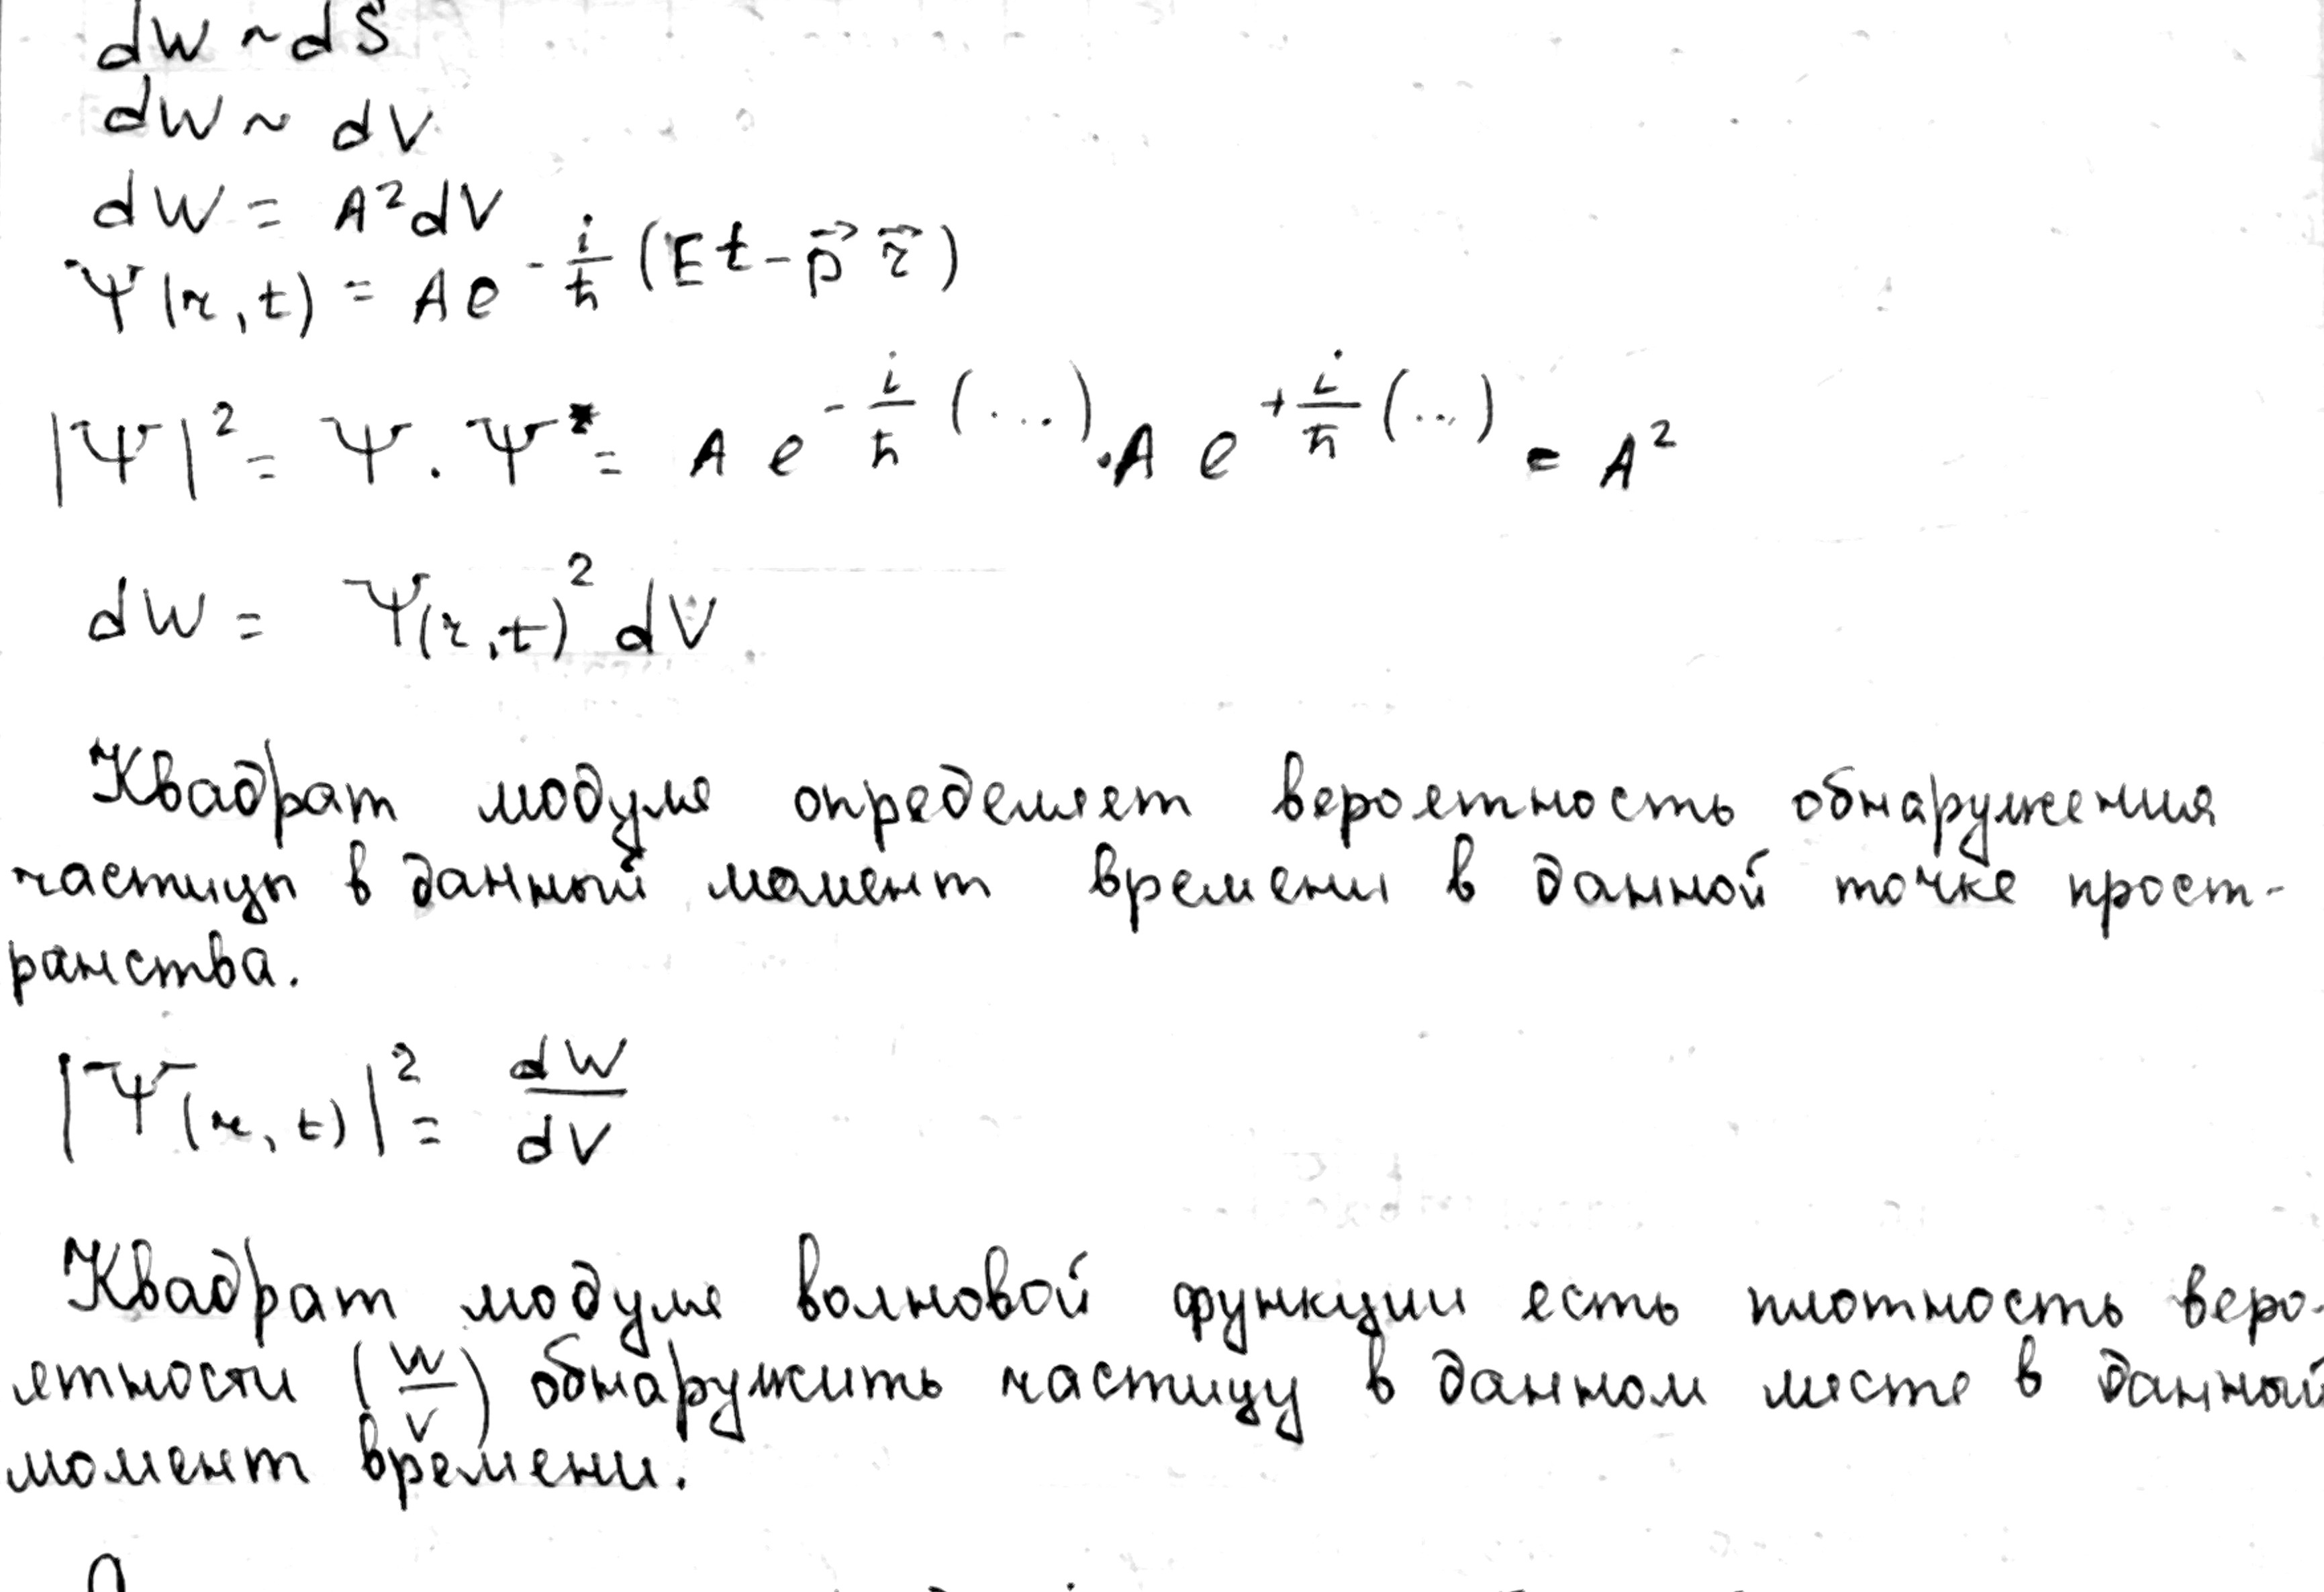 dW ~ dS
dW ~ dV
dW = A²dV
Ψ(r,t) = A e^{-i/ħ (Et - p⃗ r⃗)}
|Ψ|² = Ψ · Ψ* = A e^{-i/ħ (...)} · A e^{+i/ħ (...)} = A²
dW = Ψ(r,t)² dV
Квадрат модуля определяет вероятность обнаружения
частицы в данный момент времени в данной точке прост-
ранства.
|Ψ(r,t)|² = dW/dV
Квадрат модуля волновой функции есть плотность веро-
ятности (W/V) обнаружить частицу в данном месте в данный
момент времени.